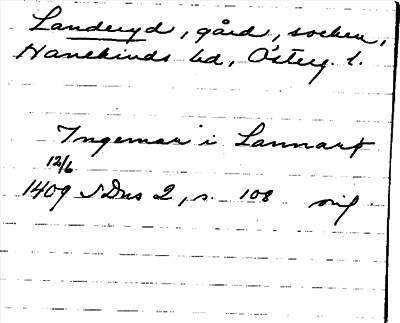 Landeryd, gård, socken,
Hanekinds hd, Österg. l.
Ingemar i Lannarþ
12/6
1409 SDns 2, s. 108 orig.